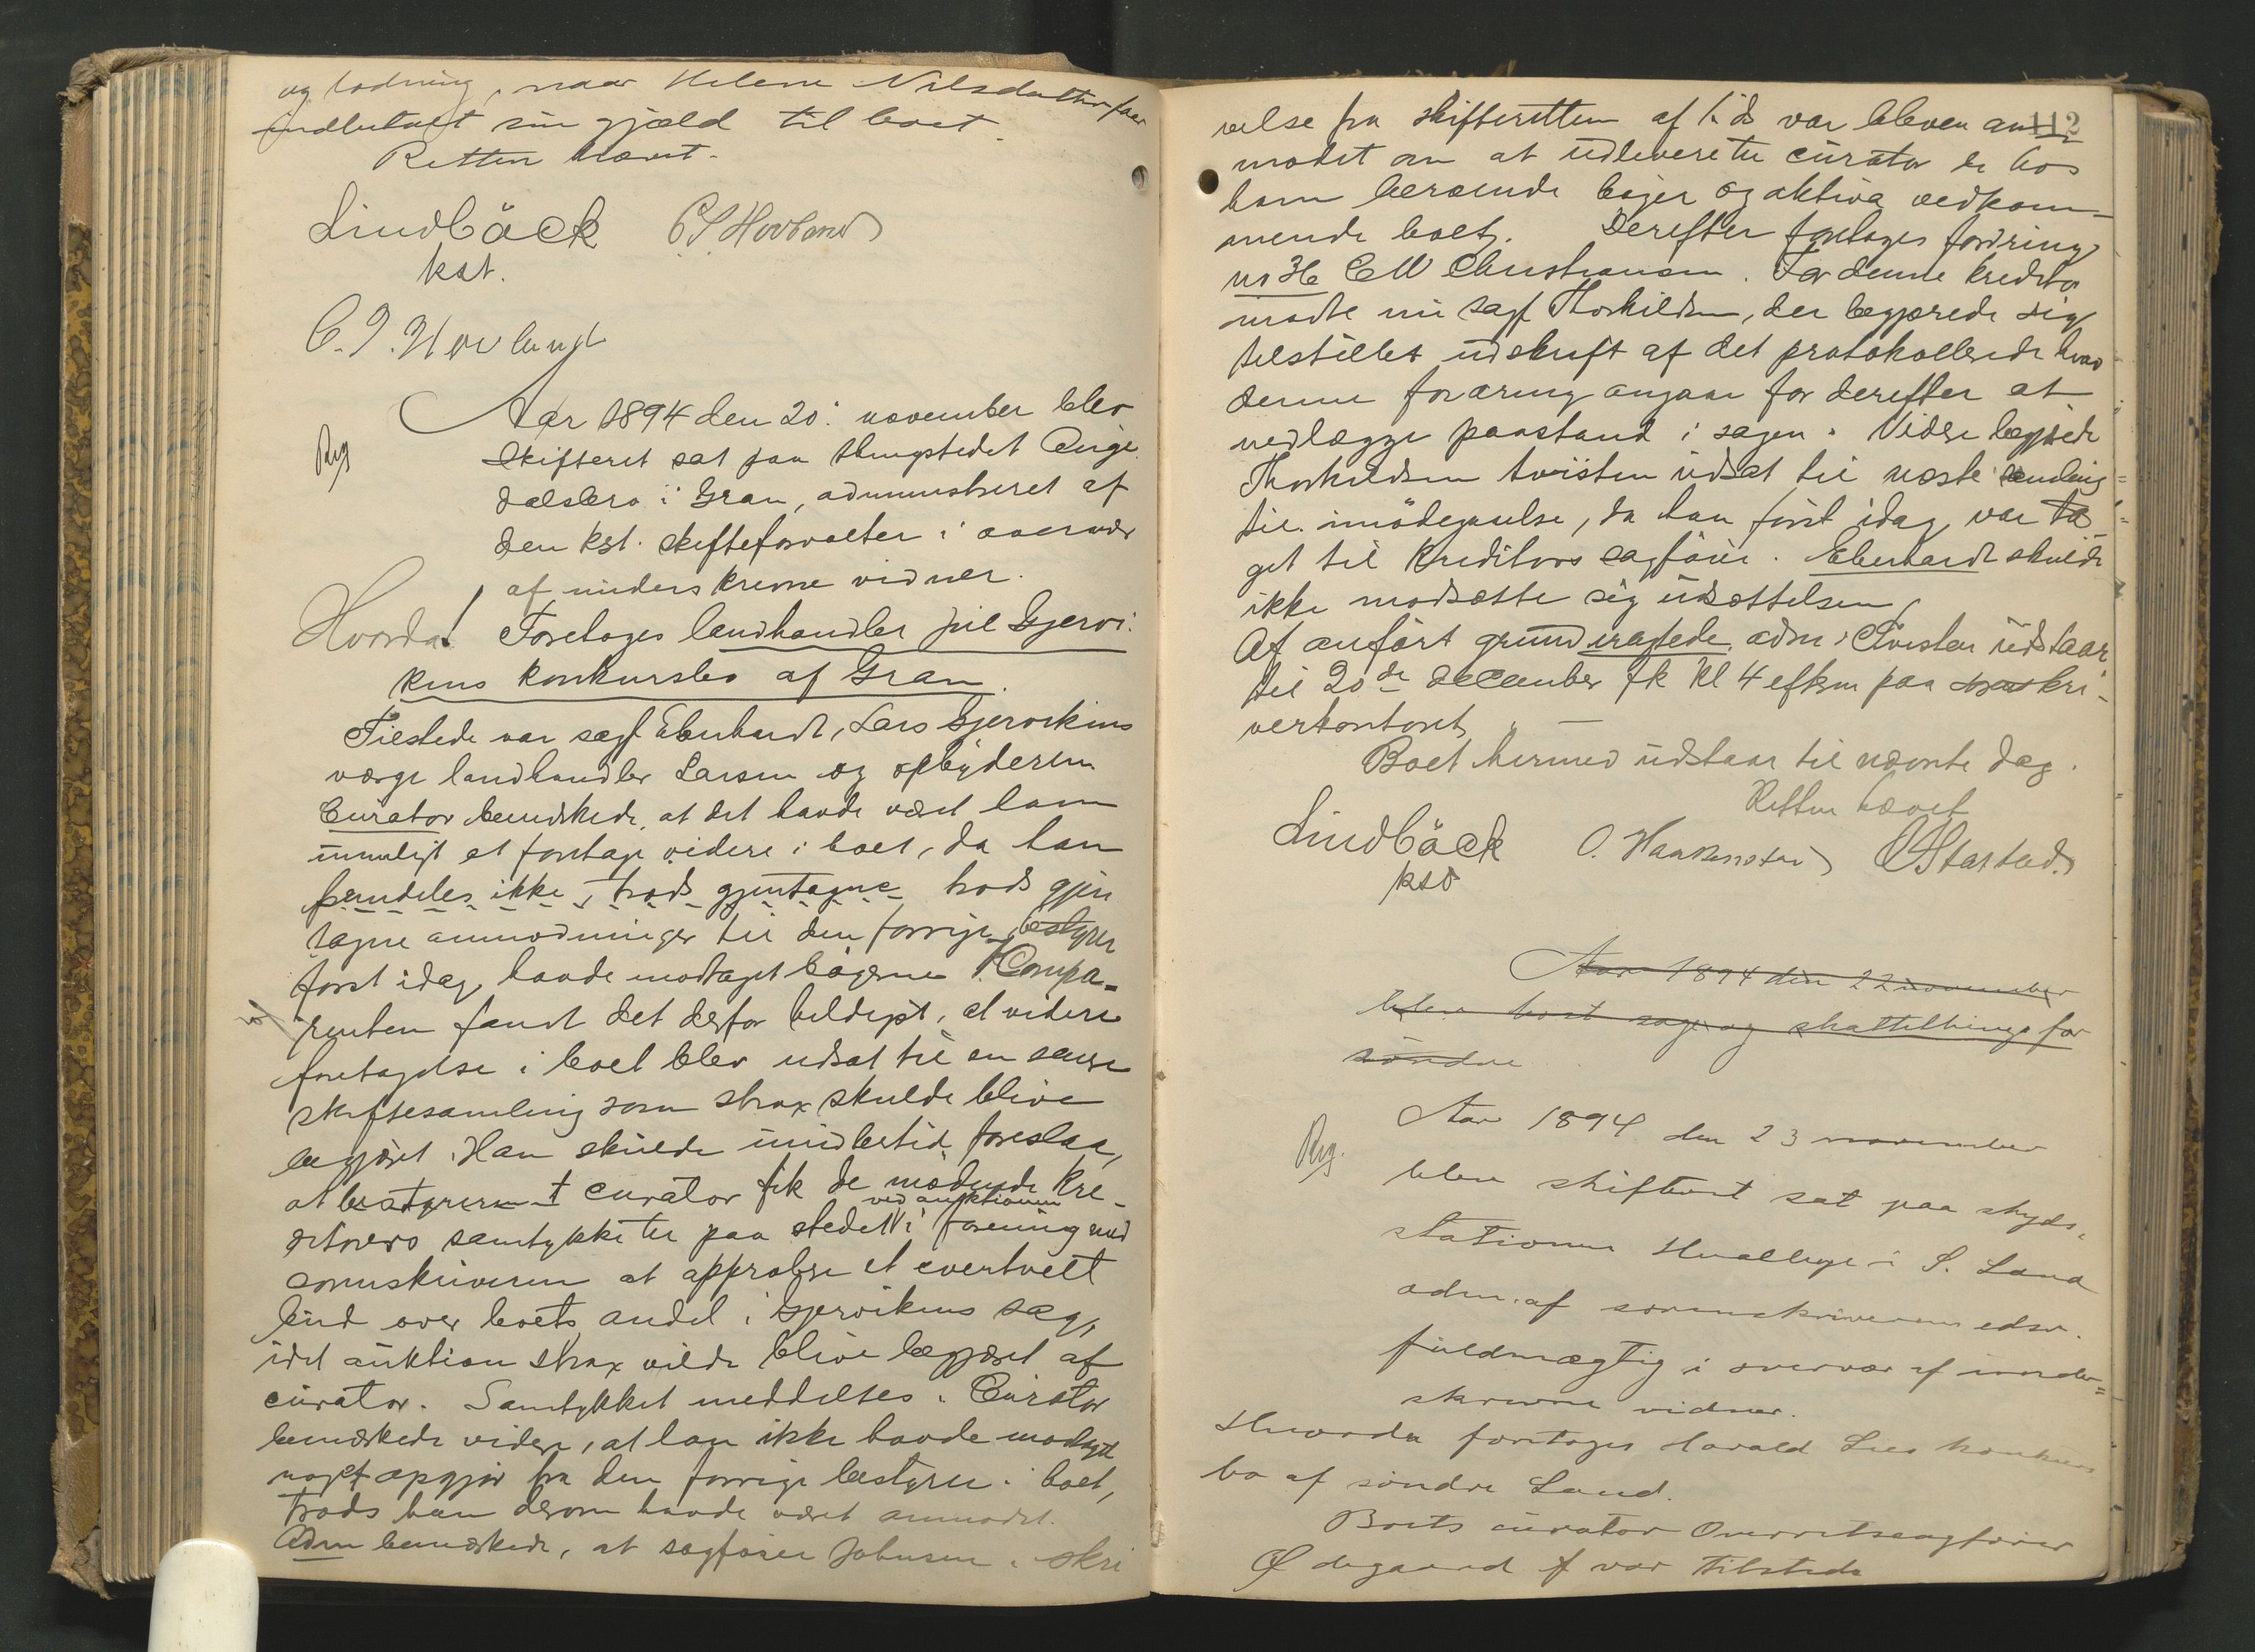 og lodning, naar Helene Nilsdatter faar
indbetalt sin gjæld til boet.
Retten hævet.
Lindbäck
kst.
C. J. Hovland
Reg
Aar 1894 den 20. november blev
skifteret sat paa thingstedet
i Gran, administreret af
den kst. skifteforvalter i overvær
af underskrevne vidner.
Hvorda!
Foretoges landhandler Gjervi-
kens konkursbo af Gran.
Tilstede var sagf Eberhardt, Lars Gjervikens
værge landhandler Larsen og opbyderen
Curator bemærkede, at det havde været ham
umuligt at foretage videre i boet, da han
fremdeles ikke, trods gjentagne trods gjen
tagne anmodninger til den forrige bestyrer
først idag havde modtaget bøgerne. Compa-
renten fandt det derfor heldigst, at videre
foretagelse i boet blev udsat til en senere
skiftesamling som strax skulde blive
begjært. Han skulde imidlertid foreslaa,
at bestyreren curator fik de mødende kre-
ditorers samtykke til paa stedet ved auktionen i forening med
sorenskriveren at approbere et eventuelt
bud over boets andel i Gjervikens sag,
idet auktion strax vilde blive begjæret af
curator. Samtykket meddeltes. Curator
bemærkede videre, at han ikke havde modtaget
noget opgjør fra den forrige bestyrer i boet,
trods han derom havde været anmodet.
Adm bemærkede, at sagfører Johnsen i skri
112
velse fra skifteretten af ds var bleven an
modet om at udlevere til curator de hos
ham beroende bøger og aktiva vedkom-
mende boet. Derefter foretoges fordring
nr 36 C M Christiansen. For denne kreditor
mødte nu sagf Thorkildsen, der begjærede sig
tilstillet udskrift af det protokollerede hvad
denne fordring angaar for derefter at
nedlægge paastand i sagen. Videre begjærede
Thorkildsen tvisten udsat til næste samling
til imødegaaelse, da han først idag var ta
get til kreditors sagfører. Eberhardt skulde
ikke modsætte sig udsættelsen.
Af anført grund eragtede adm: Tvisten udstaar
til 20de december fk kl 4 efterm paa skri-
verkontoret. —
Boet hermed udstaar til nævnte dag.
Retten hævet
Lindbäck
kst
Aar 1894 den 22 november
blev holdt sage og skattethinge for
søndre
Reg.
Aar 1894 den 23 november
blev skifteret sat paa skyds-
stationen i S. Land
adm. af sorenskriverens edsv.
fuldmægtig i overvær af under=
skrevne vidner.
Hvorda foretoges Harald Lies konkurs
bo af søndre Land.
Boets curator Overretssagfører
Ødegaard var tilstede